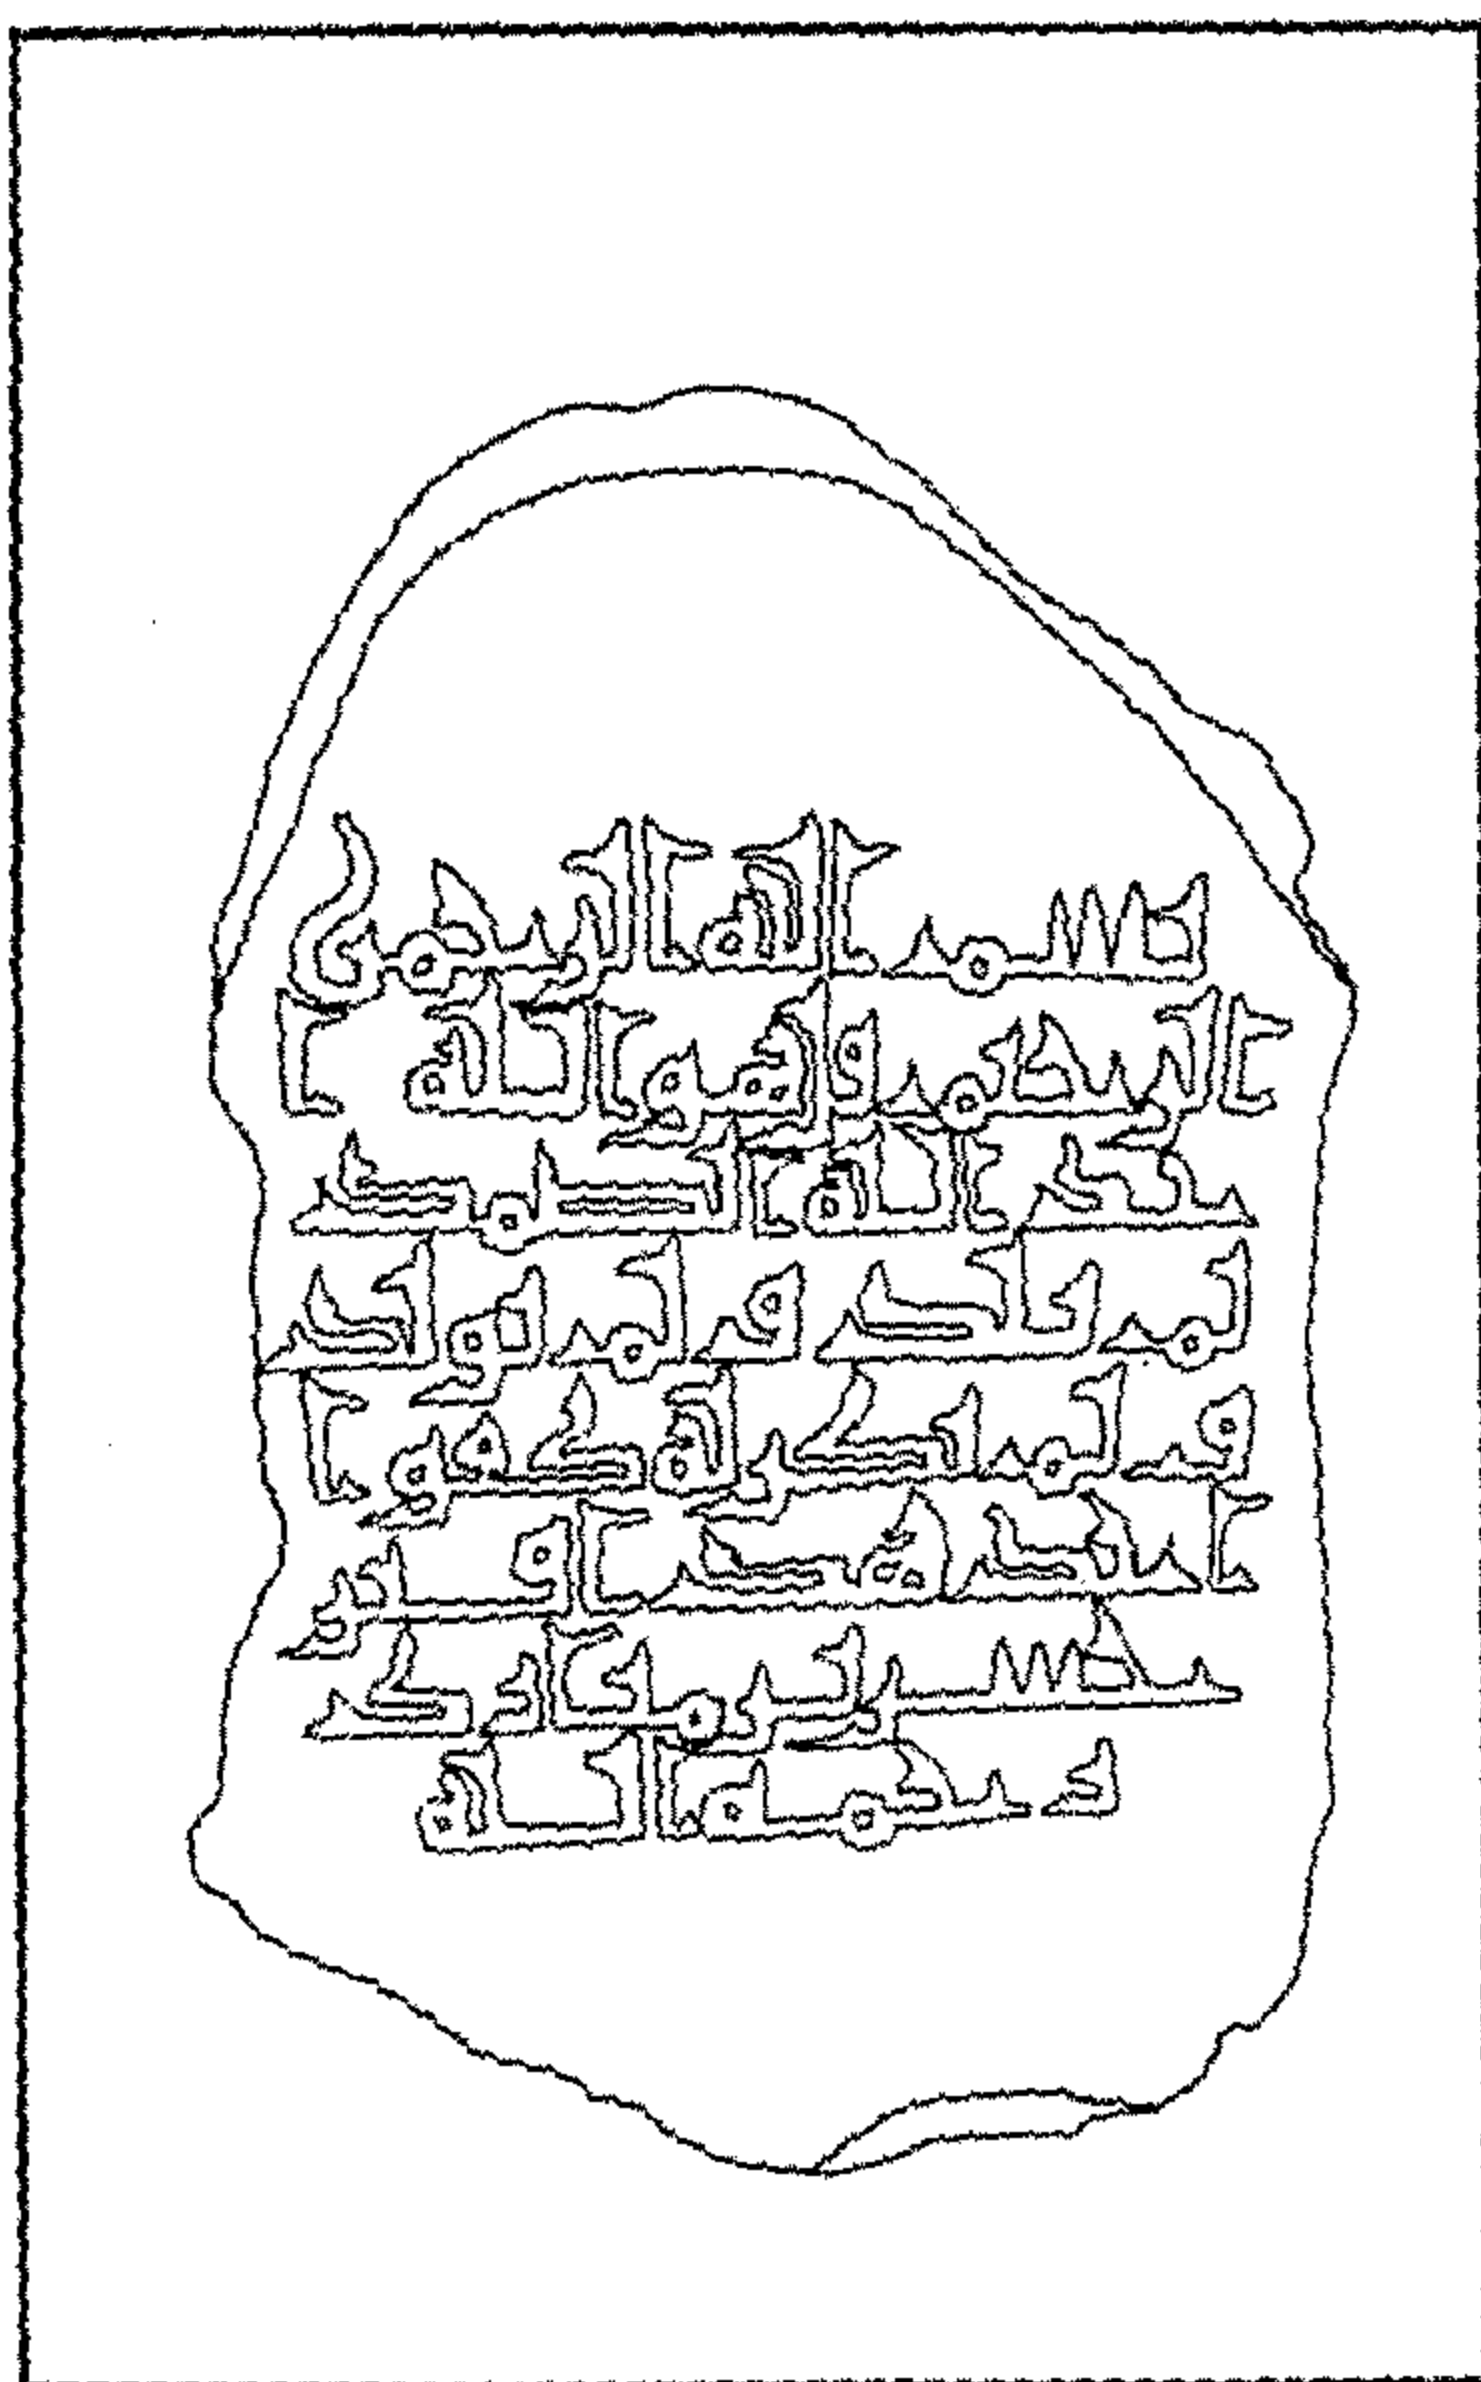 بسم الله الرحمن
الرحيم قل هو الله ا
حد الله الصمد
لم يلد و لم يولد
و لم يكن له كفوا
احد هذا قبر
حسن بن مبارك
رحمه الله